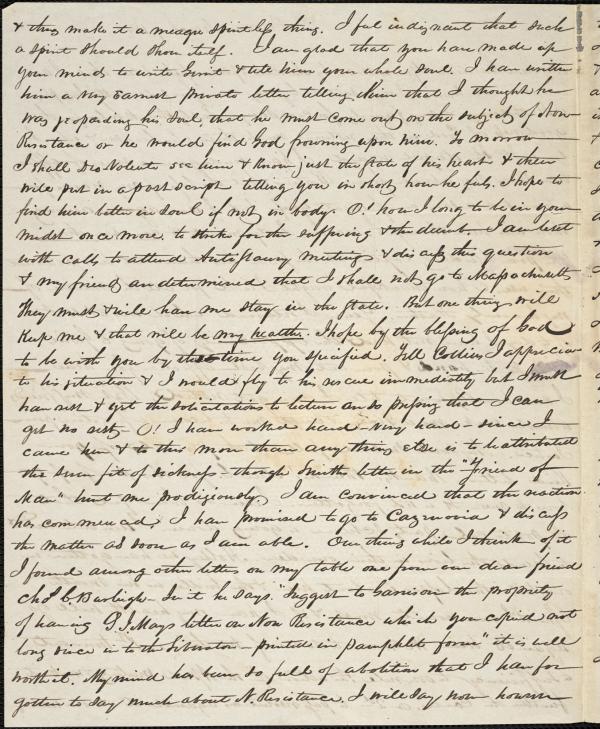 & thus make it a meagre spiritless thing. I feel indignant that such
a spirit should show itself. I am glad that you have made up
your minds to write Gerrit & tell him your whole soul. I have written
him a very earnest private letter telling him that I thought he
was jeoparding his soul, that he must come out on the subject of Non-
Resistance or he would find God frowning upon him. To morrow
I shall Deo Volente see him & know just the state of his heart & then
will put in a post script telling you in short how he feels. I hope to
find him better in soul if not in body. O! how I long to be in your
midst once more to strike for the suffering & the dumb. I am beset
with calls to attend Antislavery meetings & discuss this question
& my friends are determined that I shall not go to Massachusetts
They must & will have me stay in the state. But one thing will
keep me & that will be my health. I hope by the blessing of God
to be with you by the time you specified. Tell Collins I appreciate
his situation & I would fly to his rescue immediately but I must
have rest & yet the solicitations to lecture are so pressing that I can
get no rest. O! I have worked hard - very hard - since I
came here & to this more than any thing else is to be attributed
the severe fit of sickness - though Smith's letter in the "Friend of
Man" hurt me prodigiously. I am convinced that the reaction
has commenced. I have promised to go to Cazenovia & discuss
the matter as soon as I am able. One thing while I think of it
I found among other letters on my table one from our dear friend
Chas. C. Burleigh - In it he says. "Suggest to Garrison the propriety
of having S. J. Mays letter on Non Resistance which you copied not
long since in to the Liberator - printed in pamphlet form" it is well
worth it. My mind has been so full of abolition that I have for-
gotten to say much about N. Resistance. I will say now however